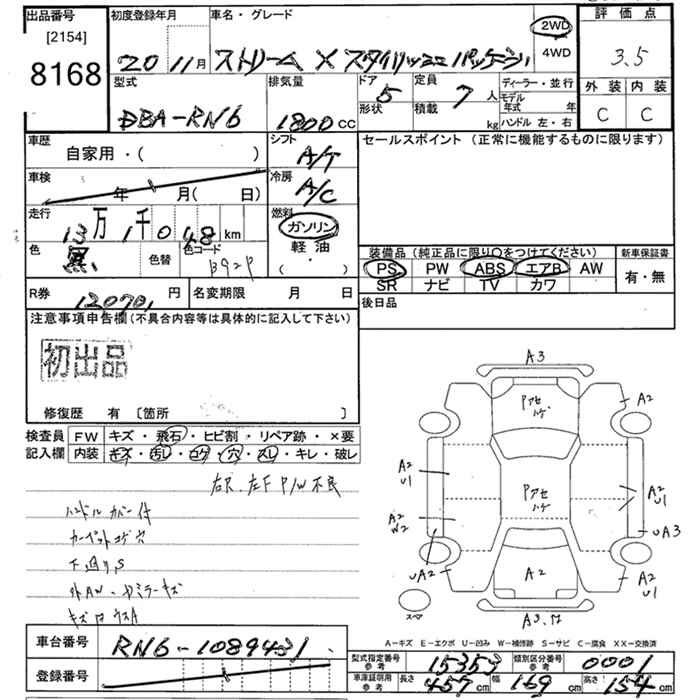 出品番号
[2154]
8168
初度登録年月
20 11月
車名・グレード
ストリーム X スタイリッシュ パッケージ
2WD
4WD
評価点
3.5
外装 内装
C C
型式
DBA-RN6
排気量
1800CC
ドア 5
形状
定員 7人
積載 kg
ディーラー・並行
モデル年式 年
ハンドル 左・右
車歴
自家用・( )
シフト
A/T
車検
年 月( 日)
冷房
A/C
走行
13万1千048km
燃料
ガソリン
軽油
・( )
色
黒
色替
色コード
B92P
R券 12070 円
名変期限 月 日
セールスポイント (正常に機能するものに限ります)
装備品 (純正品に限り○をつけてください)
PS PW ABS エアB AW
SR ナビ TV カワ
新車保証書
有・無
後日品
注意事項申告欄(不具合内容等は具体的に記入して下さい)
初出品
修復歴 有 〔箇所 〕
検査員記入欄
FW キズ・飛石・ヒビ割・リペア跡・×要
内装 キズ・汚レ・コゲ・穴・スレ・キレ・破レ
右R.左F P/W不良
ハンドルカバー付
カーペットコゲ穴
下廻りS
外AW・ドアミラーキズ
A3
Pアセ
ハゲ
A2
A2
U1
Pアセ
ハゲ
A2
U1
A2
W2
UA3
UA2
A2
A2
U1
スペア
A-キズ E-エクボ U-凹み W-補修跡 S-サビ C-腐食 XX-交換済
車台番号 RN6-1089431
登録番号
型式指定番号 参考 15353
類別区分番号 参考 0001
車庫証明用 参考 長さ 457cm 幅 169cm 高さ 154cm